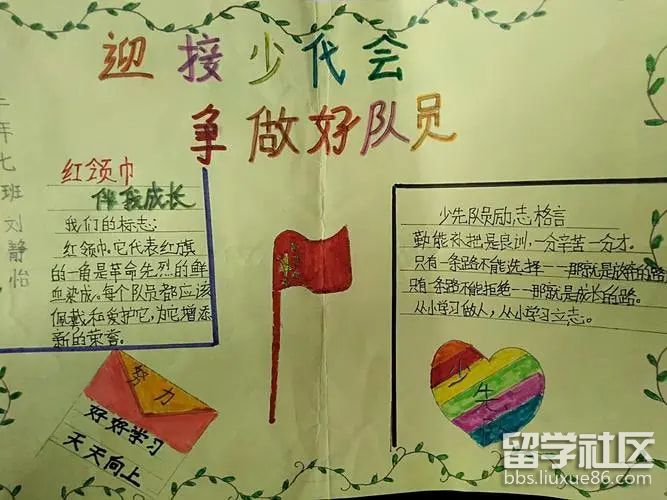 迎接少代会
争做好队员
二年七班刘静怡
红领巾
伴我成长
我们的标志:
红领巾,它代表红旗
的一角是革命先烈的鲜
血染成。每个队员都应该
佩戴和爱护它,为它增添
新的荣誉。
努力
好好学习
天天向上
少先队员励志格言
勤能补拙是良训,一分辛苦一分才。
只有一条路不能选择——那就是放弃的路
只有一条路不能拒绝——那就是成长的路。
从小学习做人,从小学习立志。
少
先
留学社区
bbs.liuxue86.com